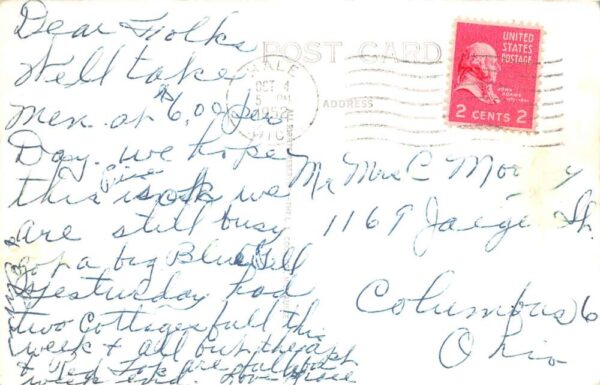 Dear Folks
Well take
Men at 6.00 per
Day. we hope
this is ok we
are still busy
got a big Blue Gill
Yesturday had
two Cottages full this
week + all but the apt
week end. Love
POST CARD
ADDRESS
YALE
OCT 4
5 PM
UNITED
STATES
POSTAGE
JOHN
ADAMS
2 CENTS 2
Mr Mrs C
1169 Jaeger St.
Columbus 6
Ohio